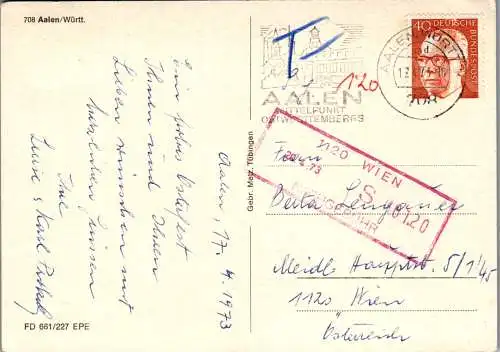 708 Aalen/Württ.
Ein frohes Osterfest
Ihnen und Ihren
Lieben wünschen mit
herzlichen Grüssen
Ihre
Luise & Karl
Aalen, 17.4.1973
FD 661/227 EPE
Gebr. Metz, Tübingen
T
120
AALEN
MITTELPUNKT
OSTWÜRTTEMBERGS
AALEN, WÜRTT
708
40 DEUTSCHE
BUNDESPOST
1120 WIEN
S 01.20
Frau
Berta
Meidle Hauptstr. 5/1/45
1120 Wien
Österreich